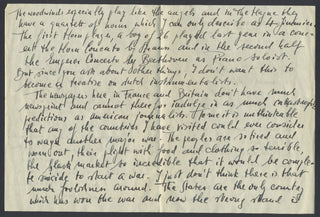 The woodwinds especially play like the angels and in the Hague they
have a quartett of horns which I can only describe as 4
The first Horn player, a boy of 26 played last year in a con-
cert the Horn Concerto by and in the second half
the Concerto by Beethoven as piano soloist.
But since you ask about other things, I don't want this to
become a treatise on dutch instrumentalists.
The newspapers here in France and Britain don't have much
newsprint and cannot therefor indulge in as much
predictions as american journalists. To me it is unthinkable
that any of the countries I have visited could even consider
to wage another major war. The peoples are so tired and
worn out, their plight with food and clothing so terrible,
the black market so incredible that it would be complete
suicide to start a war. I just don't think there is that
much foolishness around. The States are the only country
which has won the war and now the strong stand I